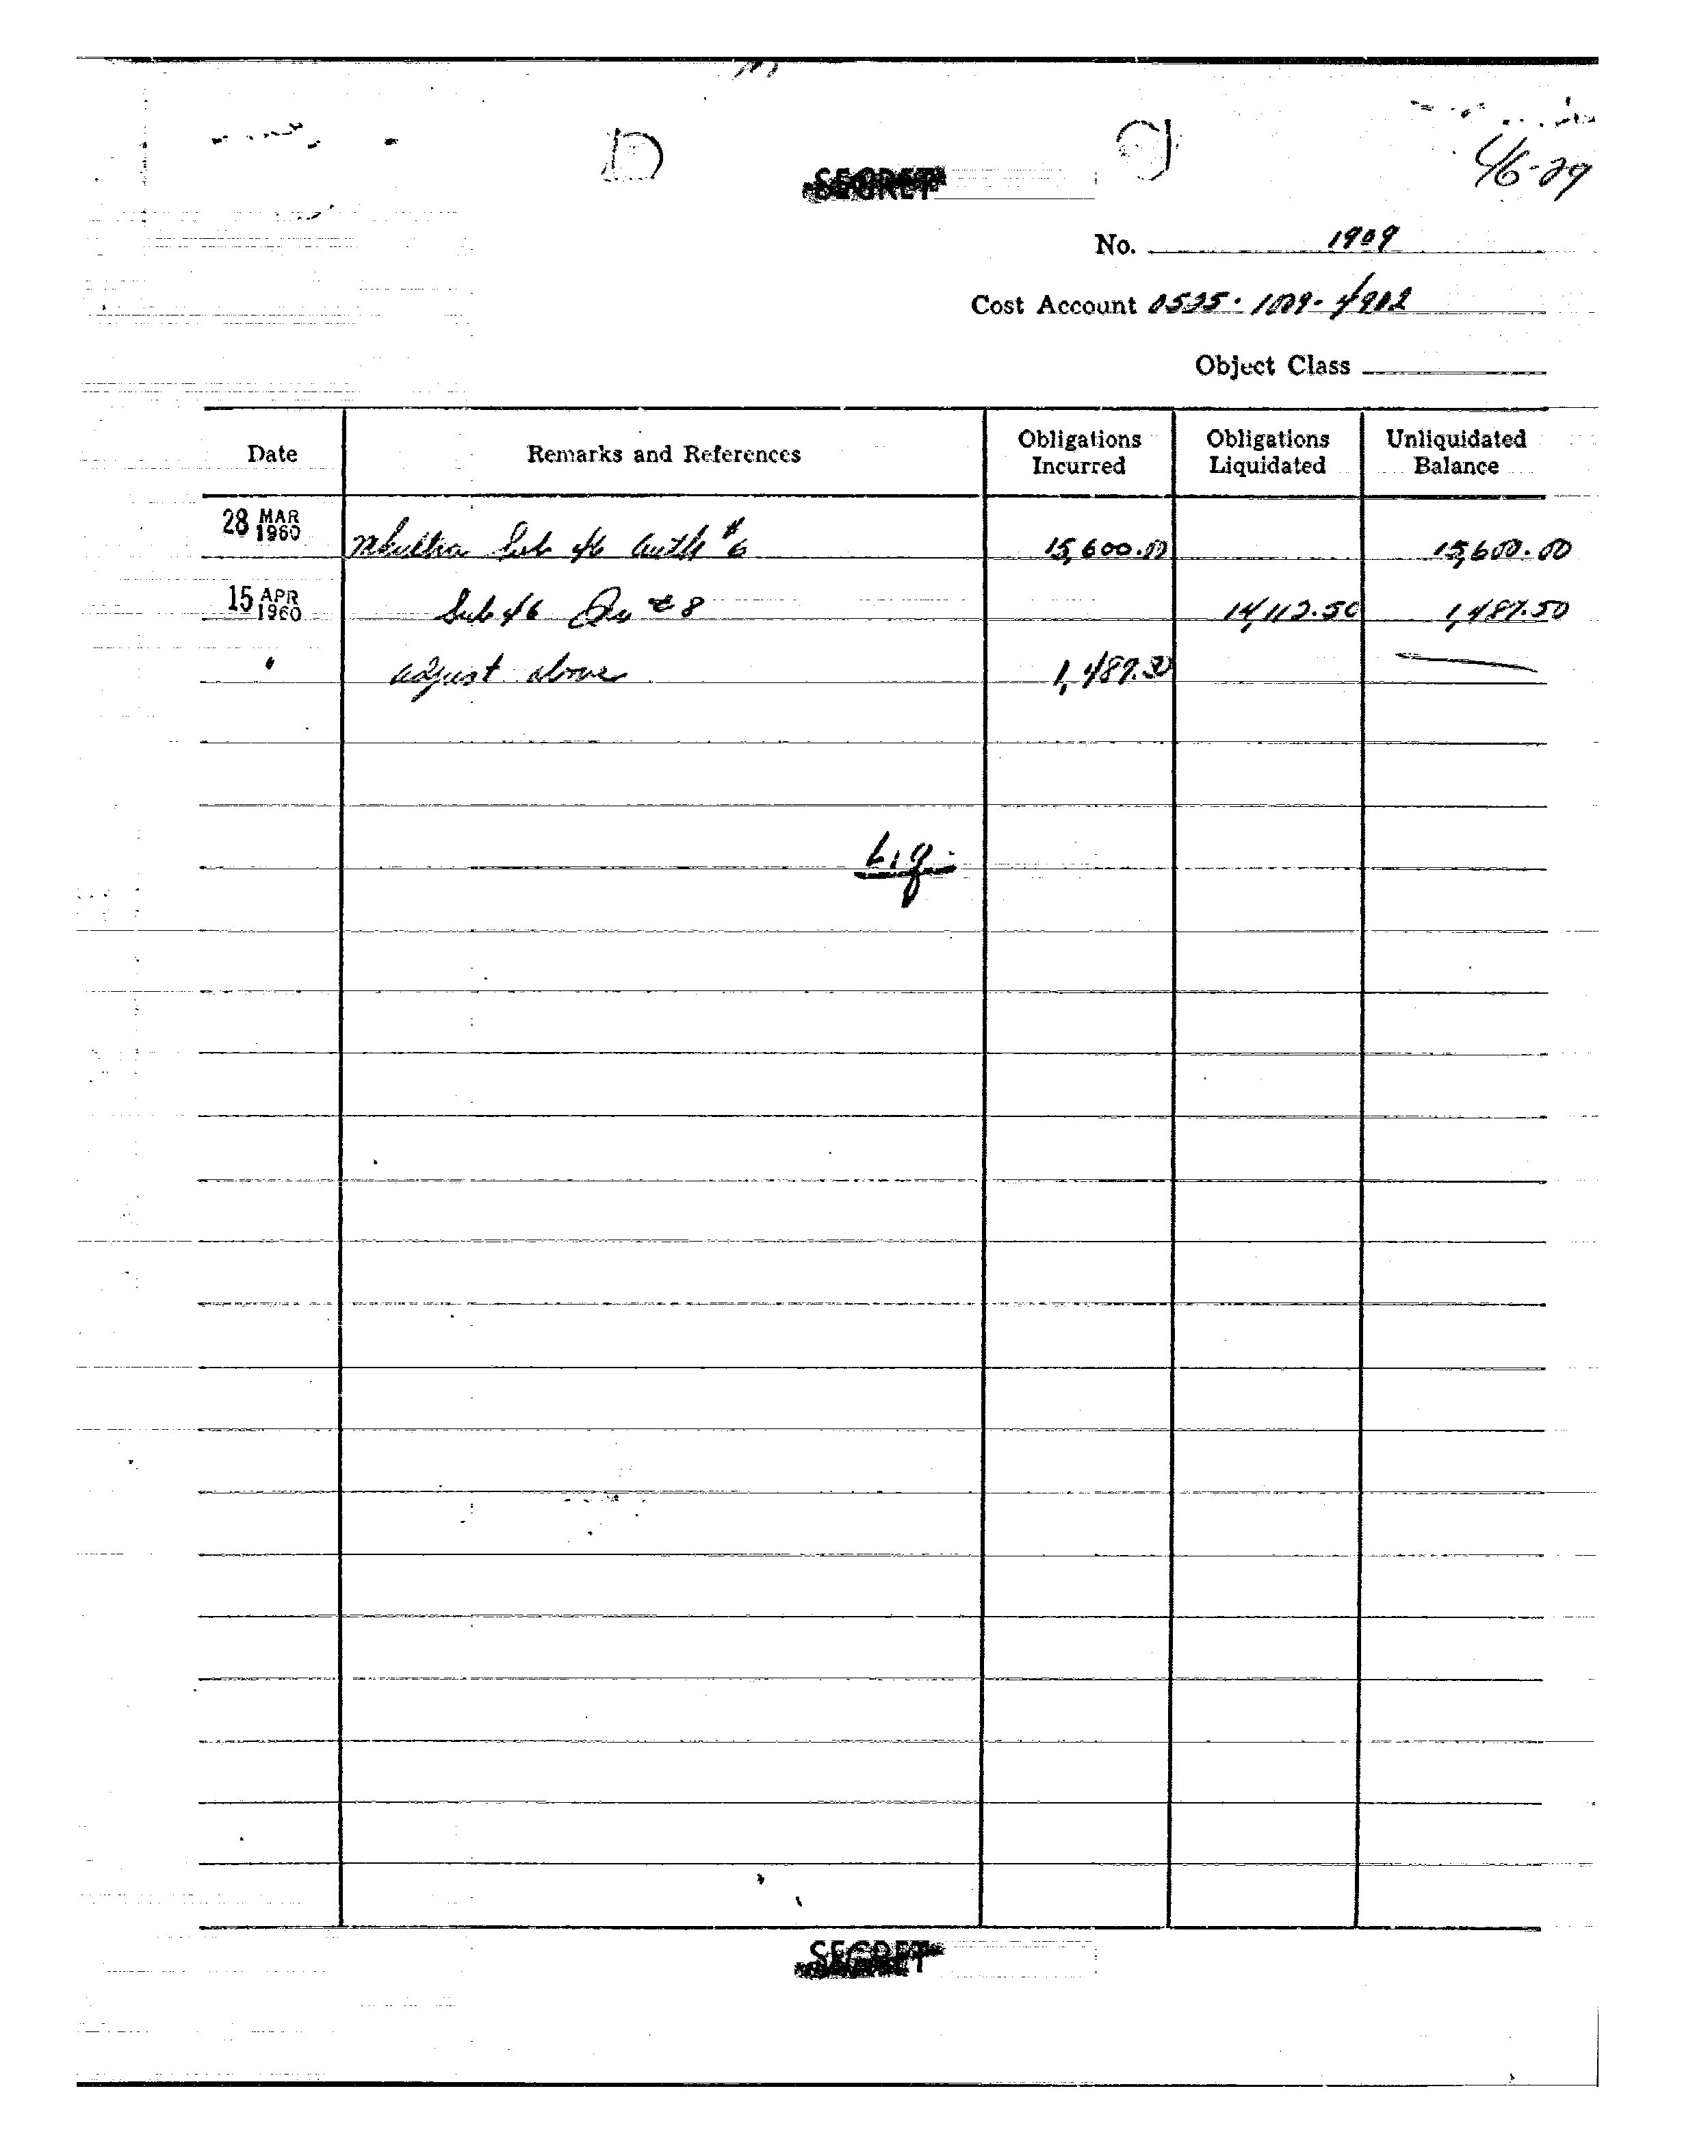 SECRET
46-29
No. 1909
Cost Account 0525-1009-4902
Object Class
Date Remarks and References Obligations Incurred Obligations Liquidated Unliquidated Balance
28 MAR 1960 Mkultra Sub 46 Auth #6 15,600.00 15,600.00
15 APR 1960 Sub 46 #8 14,112.50 1,487.50
" adjust above 1,487.50
Liq.
SECRET